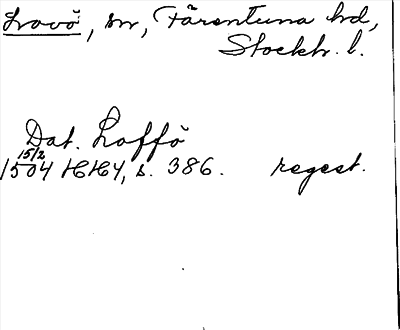 Lovö, sn, Färentuna hd,
Stockh. l.
Dat. Loffö
15/2
1504 HH4, s. 386. regest.